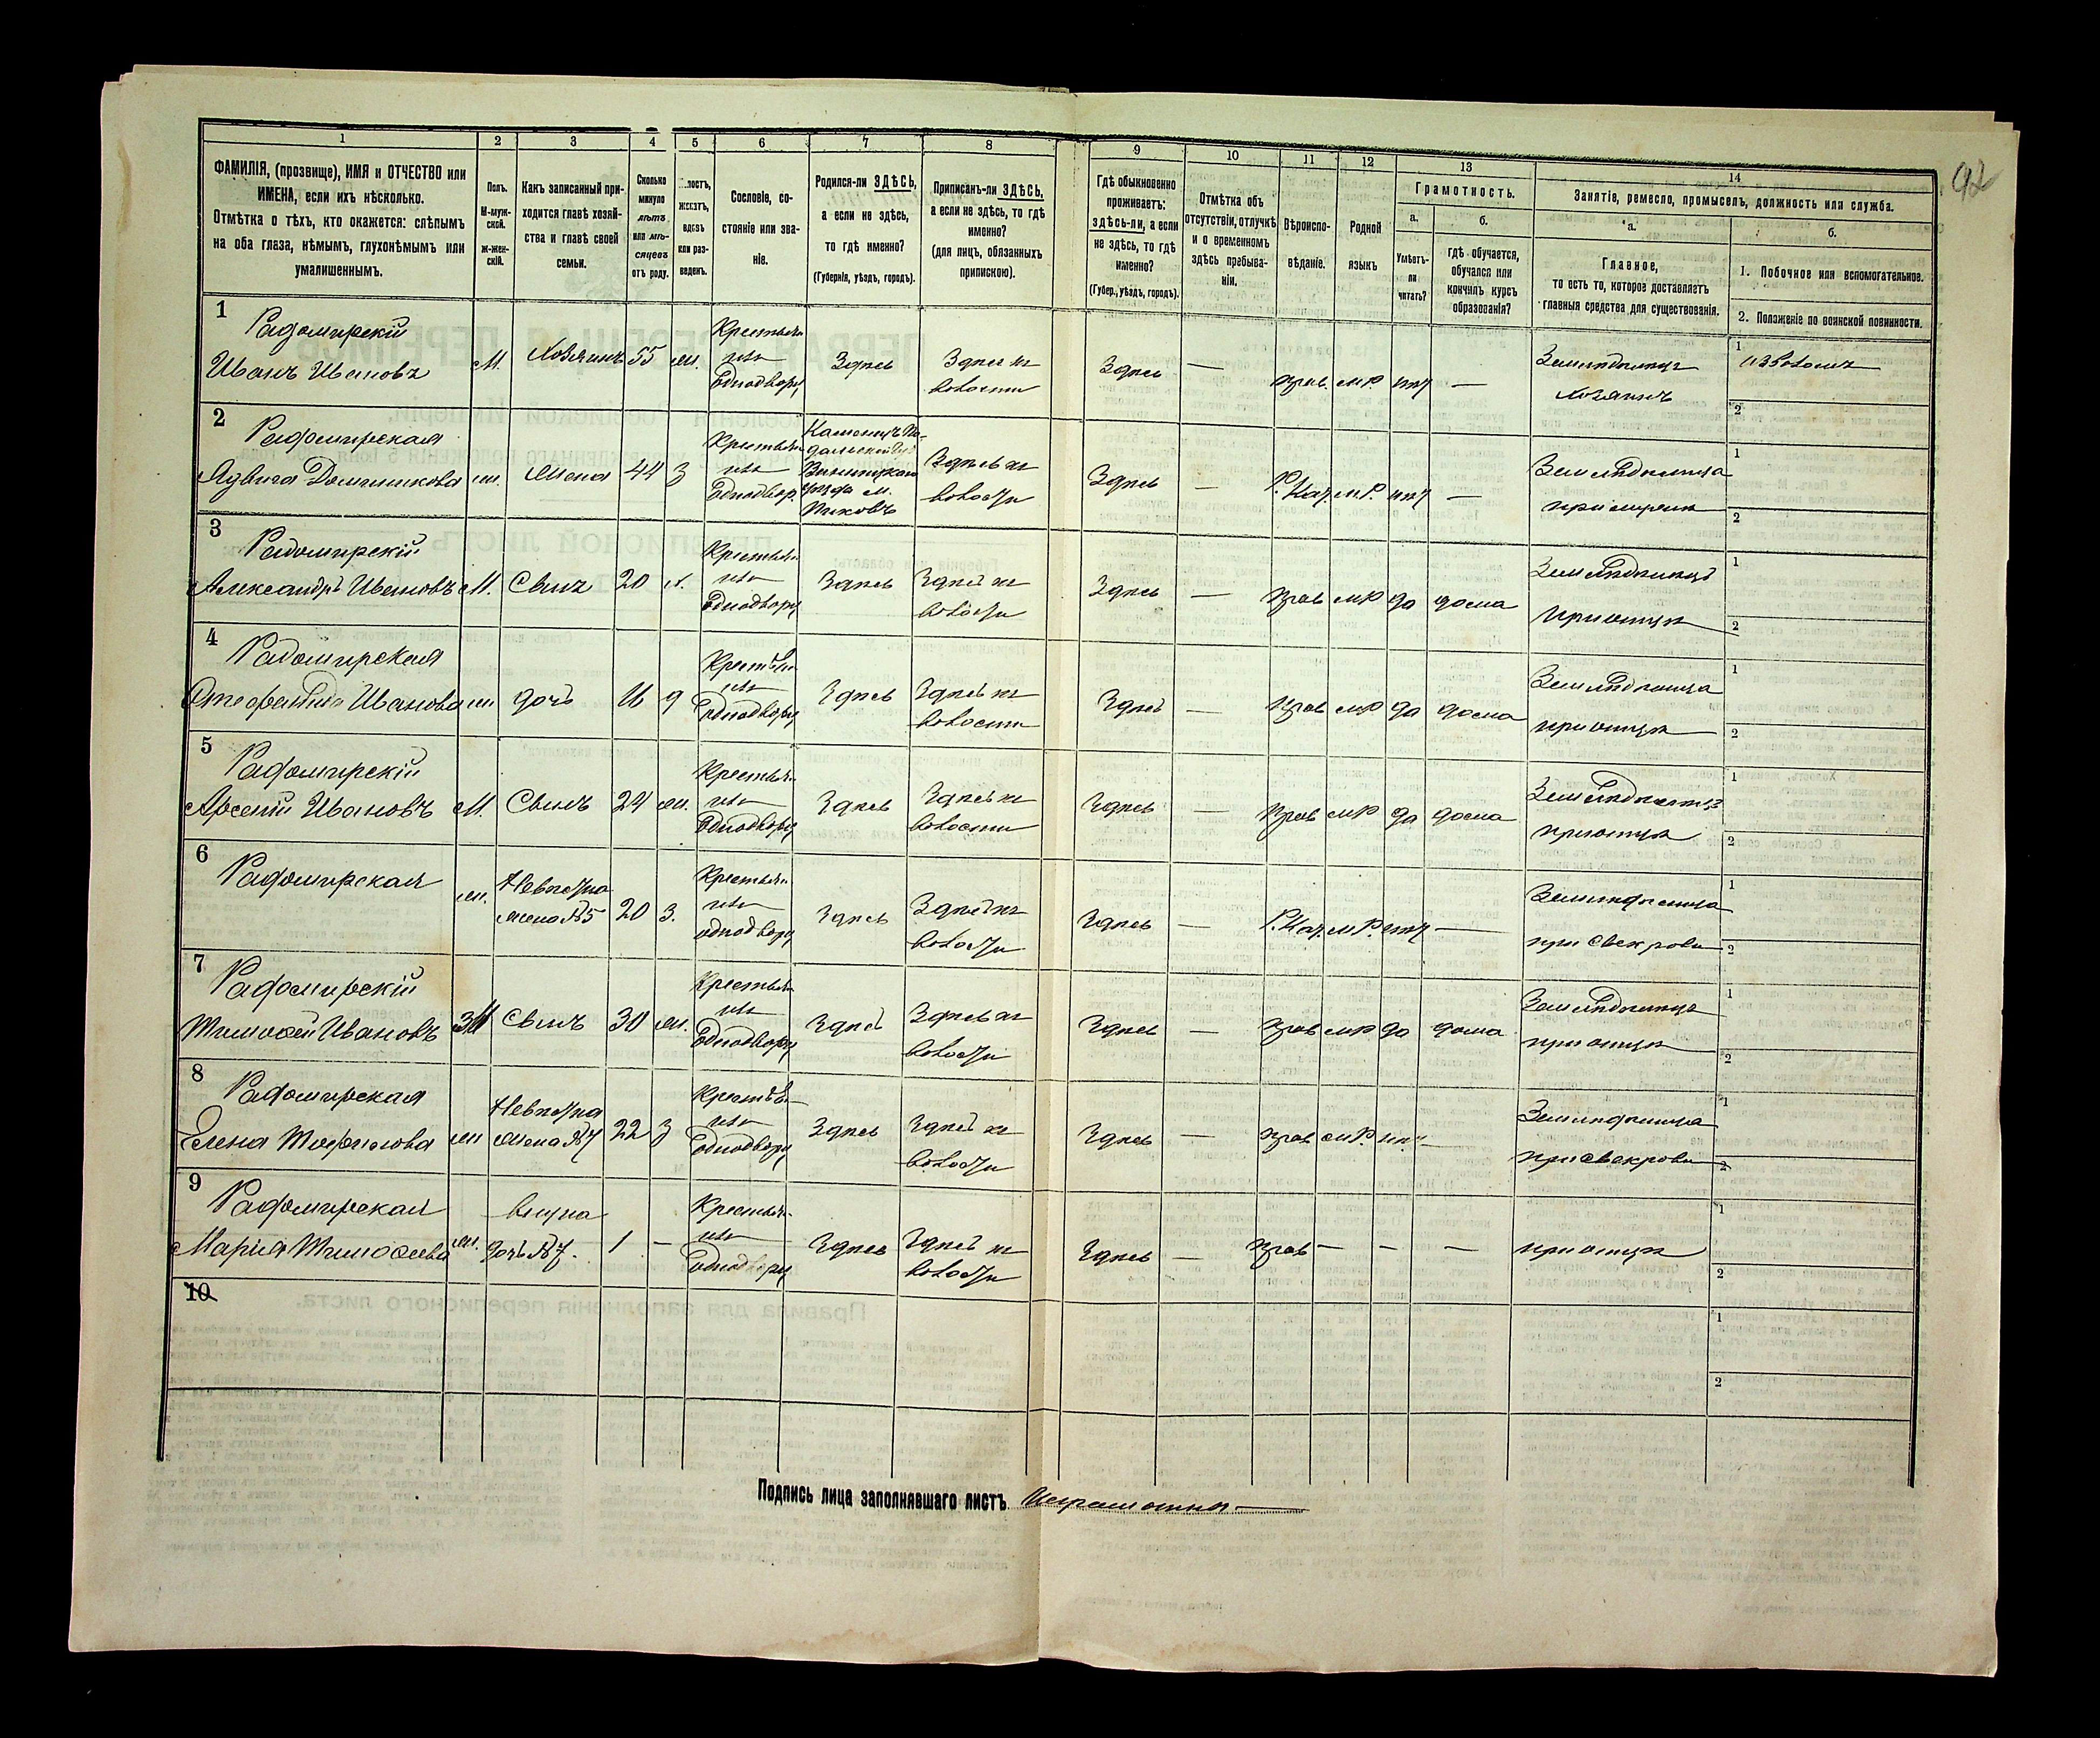 92
1 2 3 4 5 6 7 8 9 10 11 12 13 14
ФАМИЛІЯ, (прозвище), ИМЯ и ОТЧЕСТВО или
ИМЕНА, если ихъ нѣсколько.
Отмѣтка о тѣхъ, кто окажется: слѣпымъ
на оба глаза, нѣмымъ, глухонѣмымъ или
умалишеннымъ.
Полъ.
М-муж-
ской.
ж-жен-
скій.
Какъ записанный при-
ходится главѣ хозяй-
ства и главѣ своей
семьи.
Сколько
минуло
лѣтъ
или мѣ-
сяцевъ
отъ роду.
лостъ,
женатъ,
вдовъ
или раз-
веденъ.
Сословіе, со-
стояніе или зва-
ніе.
Родился-ли ЗДѢСЬ,
а если не здѣсь,
то гдѣ именно?
(Губернія, уѣздъ, городъ).
Приписанъ-ли ЗДѢСЬ,
а если не здѣсь, то гдѣ
именно?
(для лицъ, обязанныхъ
припискою).
Гдѣ обыкновенно
проживаетъ:
здѣсь-ли, а если
не здѣсь, то гдѣ
именно?
(Губер., уѣздъ, городъ).
Отмѣтка объ
отсутствіи, отлучкѣ
и о временномъ
здѣсь пребыва-
ніи.
Вѣроиспо-
вѣданіе.
Родной
языкъ
Грамотность.
а.
Умѣетъ-
ли
читать?
б.
гдѣ обучается,
обучался или
кончилъ курсъ
образованія?
Занятіе, ремесло, промыселъ, должность или служба.
а.
Главное,
то есть то, которое доставляетъ
главныя средства для существованія.
б.
1. Побочное или вспомогательное.
2. Положеніе по воинской повинности.
1
Радомирскій
Иванъ Ивановъ
М. Хозяинъ 55 ж.
Крестьян
изъ
Однодворц
Здѣсь
Здѣсь къ
волости
Здѣсь — прав. м.Р. нѣт —
Земледѣлецъ
Хозяинъ
1 извозомъ
2
2
Радомирская
Ядвига Доминикова
ж. Жена 44 з
Крестьян
изъ
Однодвор.
Каменецъ По-
дольской Губ
Винницкаго
уѣзда м.
Пиковъ
Здѣсь къ
волости
Здѣсь — Р. Кат. м.Р. нѣт —
Земледѣлица
при мужѣ
1
2
3
Радомирскій
Александръ Ивановъ
М. Сынъ 20 х.
Крестьян
изъ
Однодворц
Здѣсь
Здѣсь къ
волости
Здѣсь — прав м.Р да дома
Земледѣлецъ
при отцѣ
1
2
4
Радомирская
Ивановна
ж дочь д
Крестьян
изъ
Однодворц
Здѣсь
Здѣсь къ
волости
Здѣсь — прав м.Р да дома
Земледѣлица
при отцѣ
1
2
5
Радомирскій
Арсеній Ивановъ
М. Сынъ 24 ж.
Крестьян
изъ
Однодворц
Здѣсь
Здѣсь къ
волости
Здѣсь — прав м.Р да дома
Земледѣлецъ
при отцѣ
1
2
6
Радомирская
ж.
Невѣстка
жена №5 20 з.
Крестьян
изъ
однодворц
Здѣсь
Здѣсь къ
волости
Здѣсь — Р. Кат. м.Р. нѣт —
Земледѣлица
при свекрови
1
2
7
Радомирскій
Тимофей Ивановъ
М Сынъ 30 ж.
Крестьян
изъ
Однодворц
Здѣсь
Здѣсь къ
волости
Здѣсь — прав м.Р да дома
Земледѣлецъ
при отцѣ
1
2
8
Радомирская
Елена Теофилова
ж
Невѣстка
жена №7 22 з
Крестьян
изъ
Однодворц
Здѣсь
Здѣсь къ
волости
Здѣсь — прав м.Р. нѣт
Земледѣлица
при свекрови
1
2
9
Радомирская
Марія Тимофеева
ж.
внучка
дочь №7. 1 —
Крестьян
изъ
Однодворц
Здѣсь
Здѣсь къ
волости
Здѣсь — прав — — —
при отцѣ
1
2
10
1
2
Подпись лица заполнявшаго листъ Неграмотны